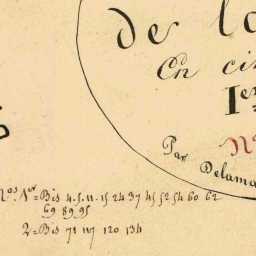 de la
En cin
Ier
No
Par
Delama
Nos. 1er = Bis 4. 5. 11. 15 24 37 45 52 54 60 62
69 89 95
2 = Bis 71 117 120 134